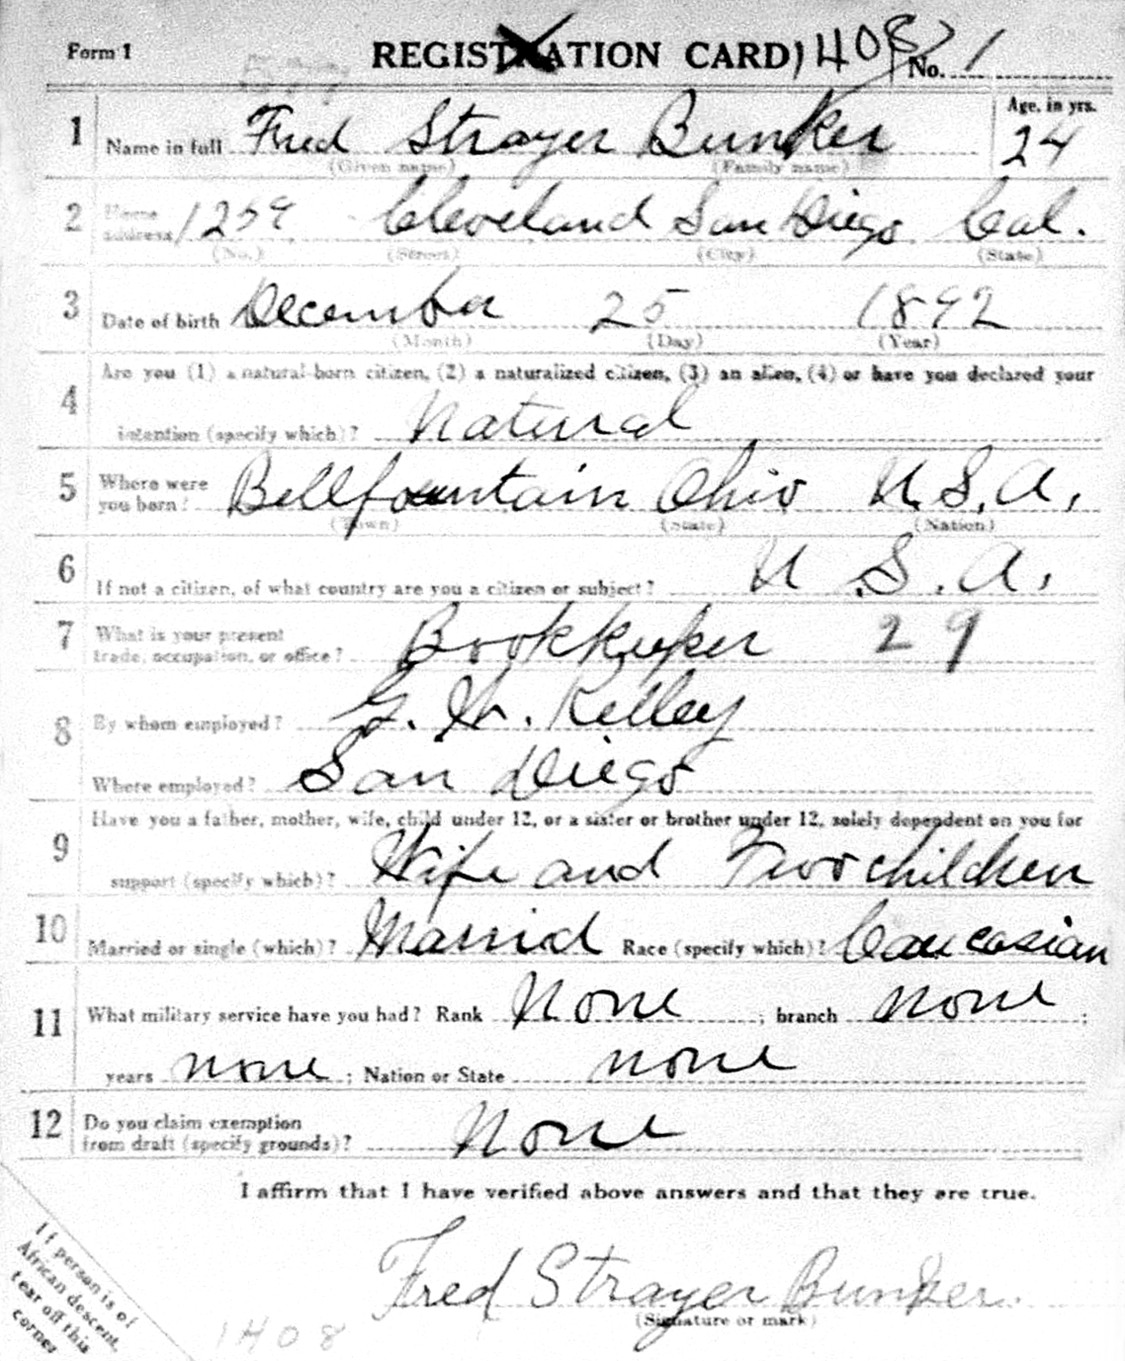 Form 1 REGISTRATION CARD 1408 No. 1
577
1 Name in full Fred Strayer Bunker Age, in yrs. 24
(Given name) (Family name)
2 Home address 1259 Cleveland San Diego Cal.
(No.) (Street) (City) (State)
3 Date of birth December 25 1892
(Month) (Day) (Year)
4 Are you (1) a natural-born citizen, (2) a naturalized citizen, (3) an alien, (4) or have you declared your
intention (specify which)? Natural
5 Where were you born? Bellfountain Ohio U.S.A.
(Town) (State) (Nation)
6 If not a citizen, of what country are you a citizen or subject? U.S.A.
7 What is your present
trade, occupation, or office? Bookkeeper 29
8 By whom employed? G. W. Kelley
Where employed? San Diego
9 Have you a father, mother, wife, child under 12, or a sister or brother under 12, solely dependent on you for
support (specify which)? Wife and Two children
10 Married or single (which)? Married Race (specify which)? Caucasian
11 What military service have you had? Rank None ; branch none ;
years none ; Nation or State none
12 Do you claim exemption
from draft (specify grounds)? None
I affirm that I have verified above answers and that they are true.
Fred Strayer Bunker.
(Signature or mark)
If person is of
African descent,
tear off this
corner
1408